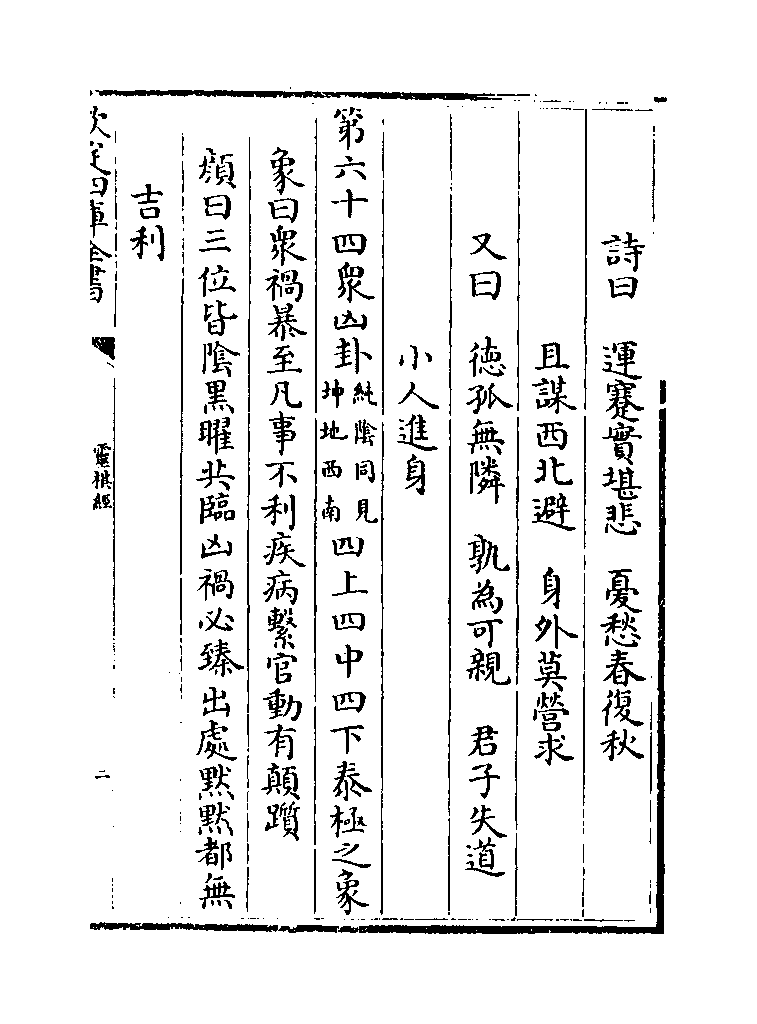 詩曰　運蹇實堪悲　憂愁春復秋
且謀西北避　身外莫營求
又曰　徳孤無隣　孰為可親　君子失道
小人進身
第六十四衆凶卦純陰同見坤地西南四上四中四下泰極之象
象曰衆禍暴至凡事不利疾病繫官動有顛躓
顔曰三位皆陰黒曜共臨凶禍必臻出處黙黙都無
吉利
欽定四庫全書
靈棋經
二